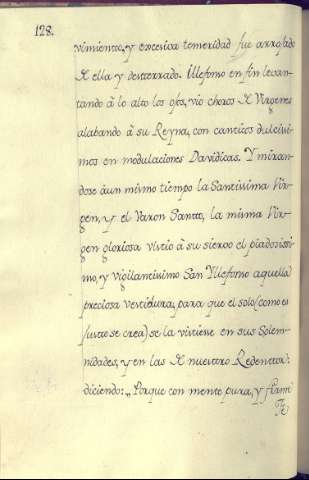 128.
vimiento, y excesiva temeridad fue arrojado
de ella y desterrado. Illefonso en fin levan-
tando â lo alto los ojos, vio choros de Virgenes
alabando â su Reyna, con canticos dulcisi-
mos en modulaciones Davidicas. Y miran-
dose âun mismo tiempo la Santissima Vir-
gen, y el Varon Santto, la misma Vir-
gen gloriosa vistio â su siervo el piadosissi-
mo, y vigilantisimo San Yllefonso aquella
preciosa vestidura, para que el solo (como es
justo se crea) se la vistiese en sus Solem-
nidades, y en las de nuestro Redemtor:
diciendo: „Porque con mente pura, y firmi